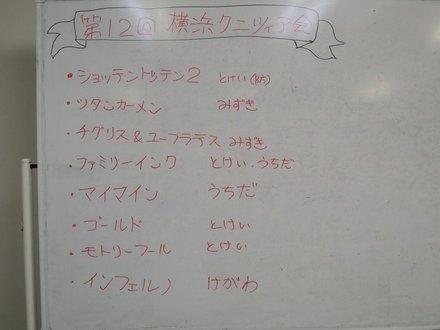 第12回 横浜クニツィア会
・ショッテントッテン2 とけい(BS)
・ツタンカーメン みずき
・チグリス&ユーフラテス みずき
・ファミリーインク とけい・うちだ
・マイマイン うちだ
・ゴールド とけい
・モトリーフール とけい
・インフェルノ けがわ